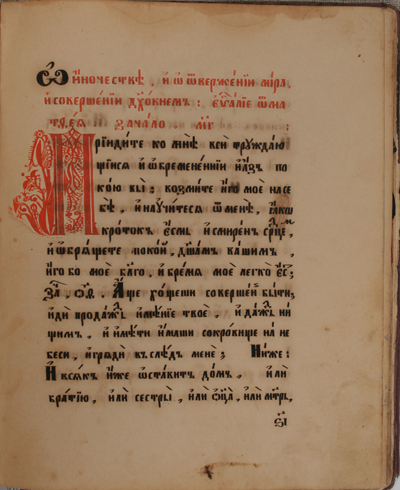 Ѽ и҆́ночествѣ , и҆ ѡ҆ ѿвержє́нїи ми́ра
и҆ совершє́нїи дх҃о́внемъ : є҆ѵⷢ҇а́лїе ѿ ма
тѳ҃е́я зача́ло . м҃г :
Прїиди́те ко мнѣ̀ всѝ трꙋжда́ю
щїися и҆ ѡ҆бременє́ннїи и҆ а҆́зъ по
ко́ю вы̀ : возми́те и҆́го моѐ на се
бѣ̀ , и҆ наꙋчи́теся ѿ менѐ , ꙗ҆́кѡ
кро́токъ є҆́смь и҆ смире́нъ срⷣцемъ ,
и҆ ѡ҆брѧ́щете поко́й , дш҃а́мъ ва́шим .
и҆́го бо моѐ бл҃го , и҆ бре́мя моѐ легко̀ є҆́сⷮ :
А҆́ще хо́щеши соверше́нъ бы́ти ,
и҆дѝ прода́жⷣь и҆мѣ́нїе твоѐ , и҆ да́жⷣь ни́
щимъ . и҆ и҆мѣ́ти и҆́маши сокро́вище на не
беси , и҆ грядѝ въ слѣ́дъ менѐ ; Ни́же :
И҆ вся́къ и҆́же ѡ҆ста́витъ до́мъ , и҆лѝ
бра́тїю , и҆лѝ сестры̀ , и҆лѝ ѻ҆ц҃а̀ , и҆лѝ мт҃рь ,